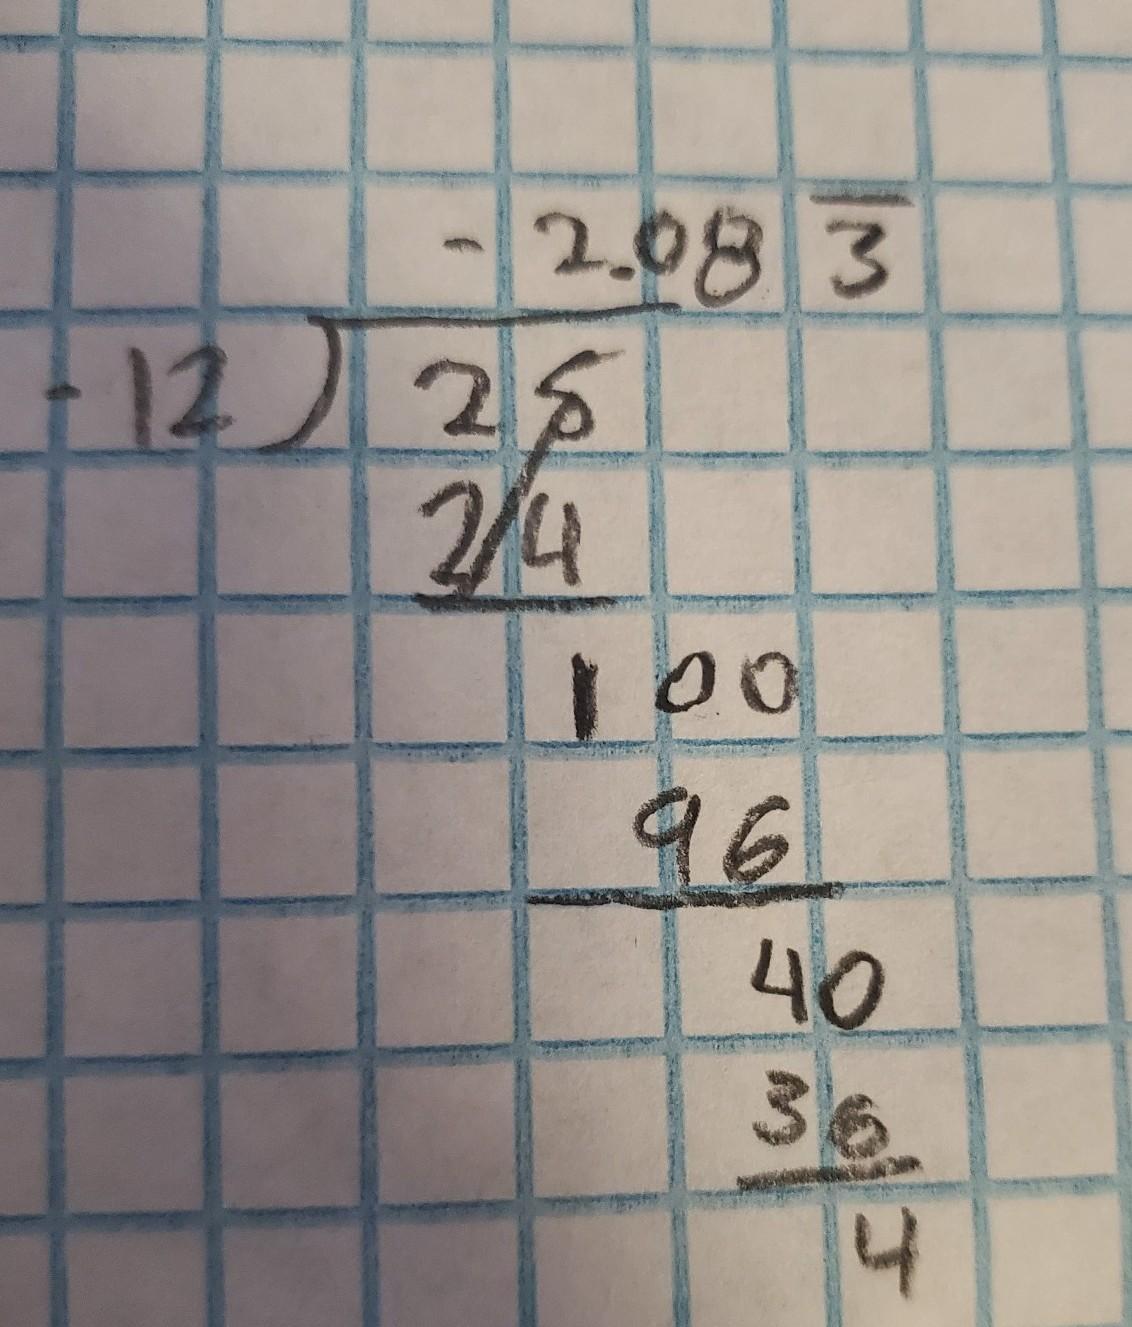 -2.083̅
-12)25
24
100
96
40
36
4